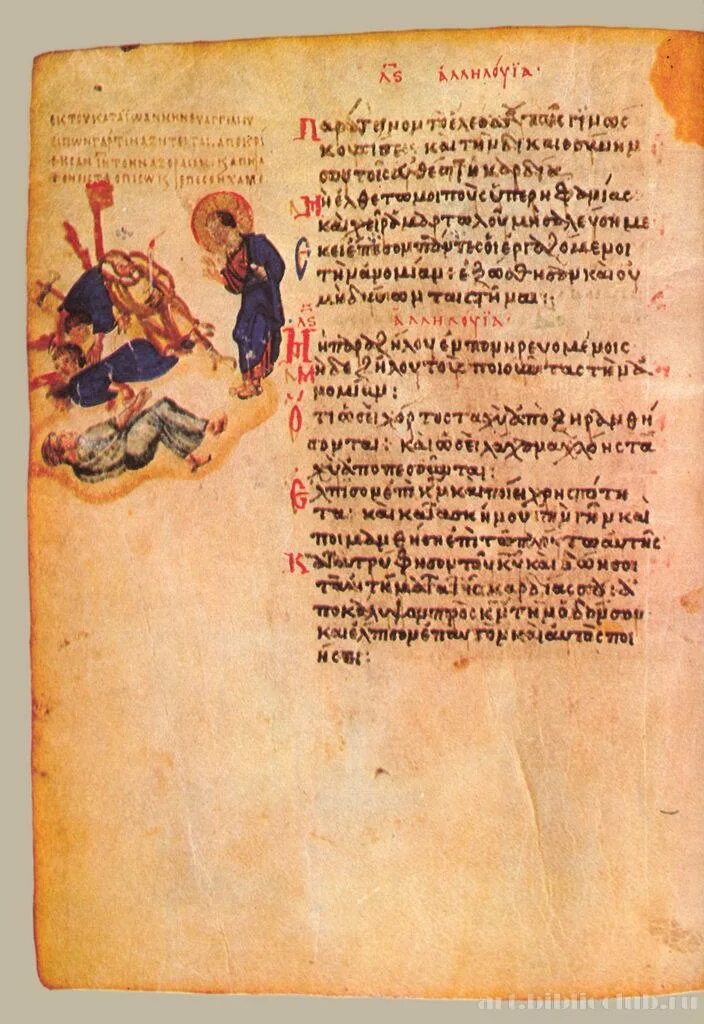 λϛ ἀλληλούϊα·
ΕΚ ΤΟΥ ΚΑΤΑ ΙΩΑΝΝΗΝ ΕΥΑΓΓΕΛΙΟΥ
ΕΙΠΩΝ ΓΑΡ ΤΙΝΑ ΖΗΤΕΙΤΑΙ ΑΠΕΚΡΙ
ΤΟΝ ΝΑΖΩΡΑΙΟΝ
ΟΠΙΣΩ ΕΠΕΣΟΝ ΧΑΜΑΙ
Παράτεινον τὸ ἔλεος γινώς
κουσίν σε: καὶ τὴν δικαιοσύνην
σου τοῖς εὐθέσι τῇ καρδία
Μὴ ἐλθέτω μοι ποὺς ὑπερηφανίας
καὶ χεὶρ ἁμαρτωλοῦ μὴ σαλεύση με
Ἐκεῖ ἔπεσον πάντες οἱ ἐργαζόμενοι
τὴν ἀνομίαν: ἐξώσθησαν καὶ οὐ
μὴ δύνωνται στῆναι:
λϛ ἀλληλούϊα·
Μὴ παραζήλου ἐν πονηρευομένοις
μηδὲ ζήλου τοὺς ποιοῦντας τὴν ἀ
νομίαν:
Ὅτι ὡσεὶ χόρτος ταχὺ ἀποξηρανθή
σονται: καὶ ὡσεὶ λάχανα χλόης τα
χὺ ἀποπεσοῦνται:
Ἔλπισον ἐπὶ κν καὶ ποίει χρηστότη
τα: καὶ κατασκήνου τὴν γῆν καὶ
ποιμανθήση ἐπὶ τῶ πλούτω αὐτῆς
Κατατρύφησον τοῦ κυ καὶ δώσει σοι
τὰ αἰτήματα τῆς καρδίας σου: ἀ
ποκάλυψον πρὸς κν τὴν ὁδόν σου
καὶ ἔλπισον ἐπ αὐτὸν καὶ αὐτὸς ποι
ήσει:
art.biblioclub.ru